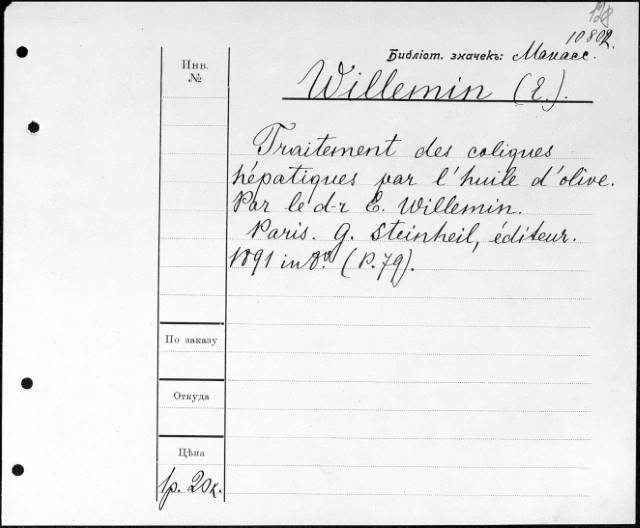 128
10802.
Библіот. значекъ: Манасс.
Инв.
№
Willemin (E.).
Traitement des coliques
hépatiques par l'huile d'olive.
Par le d-r E. Willemin.
Paris. G. Steinheil, éditeur.
1891 in 8º. (P. 79).
По заказу
Откуда
Цѣна
1р. 20к.